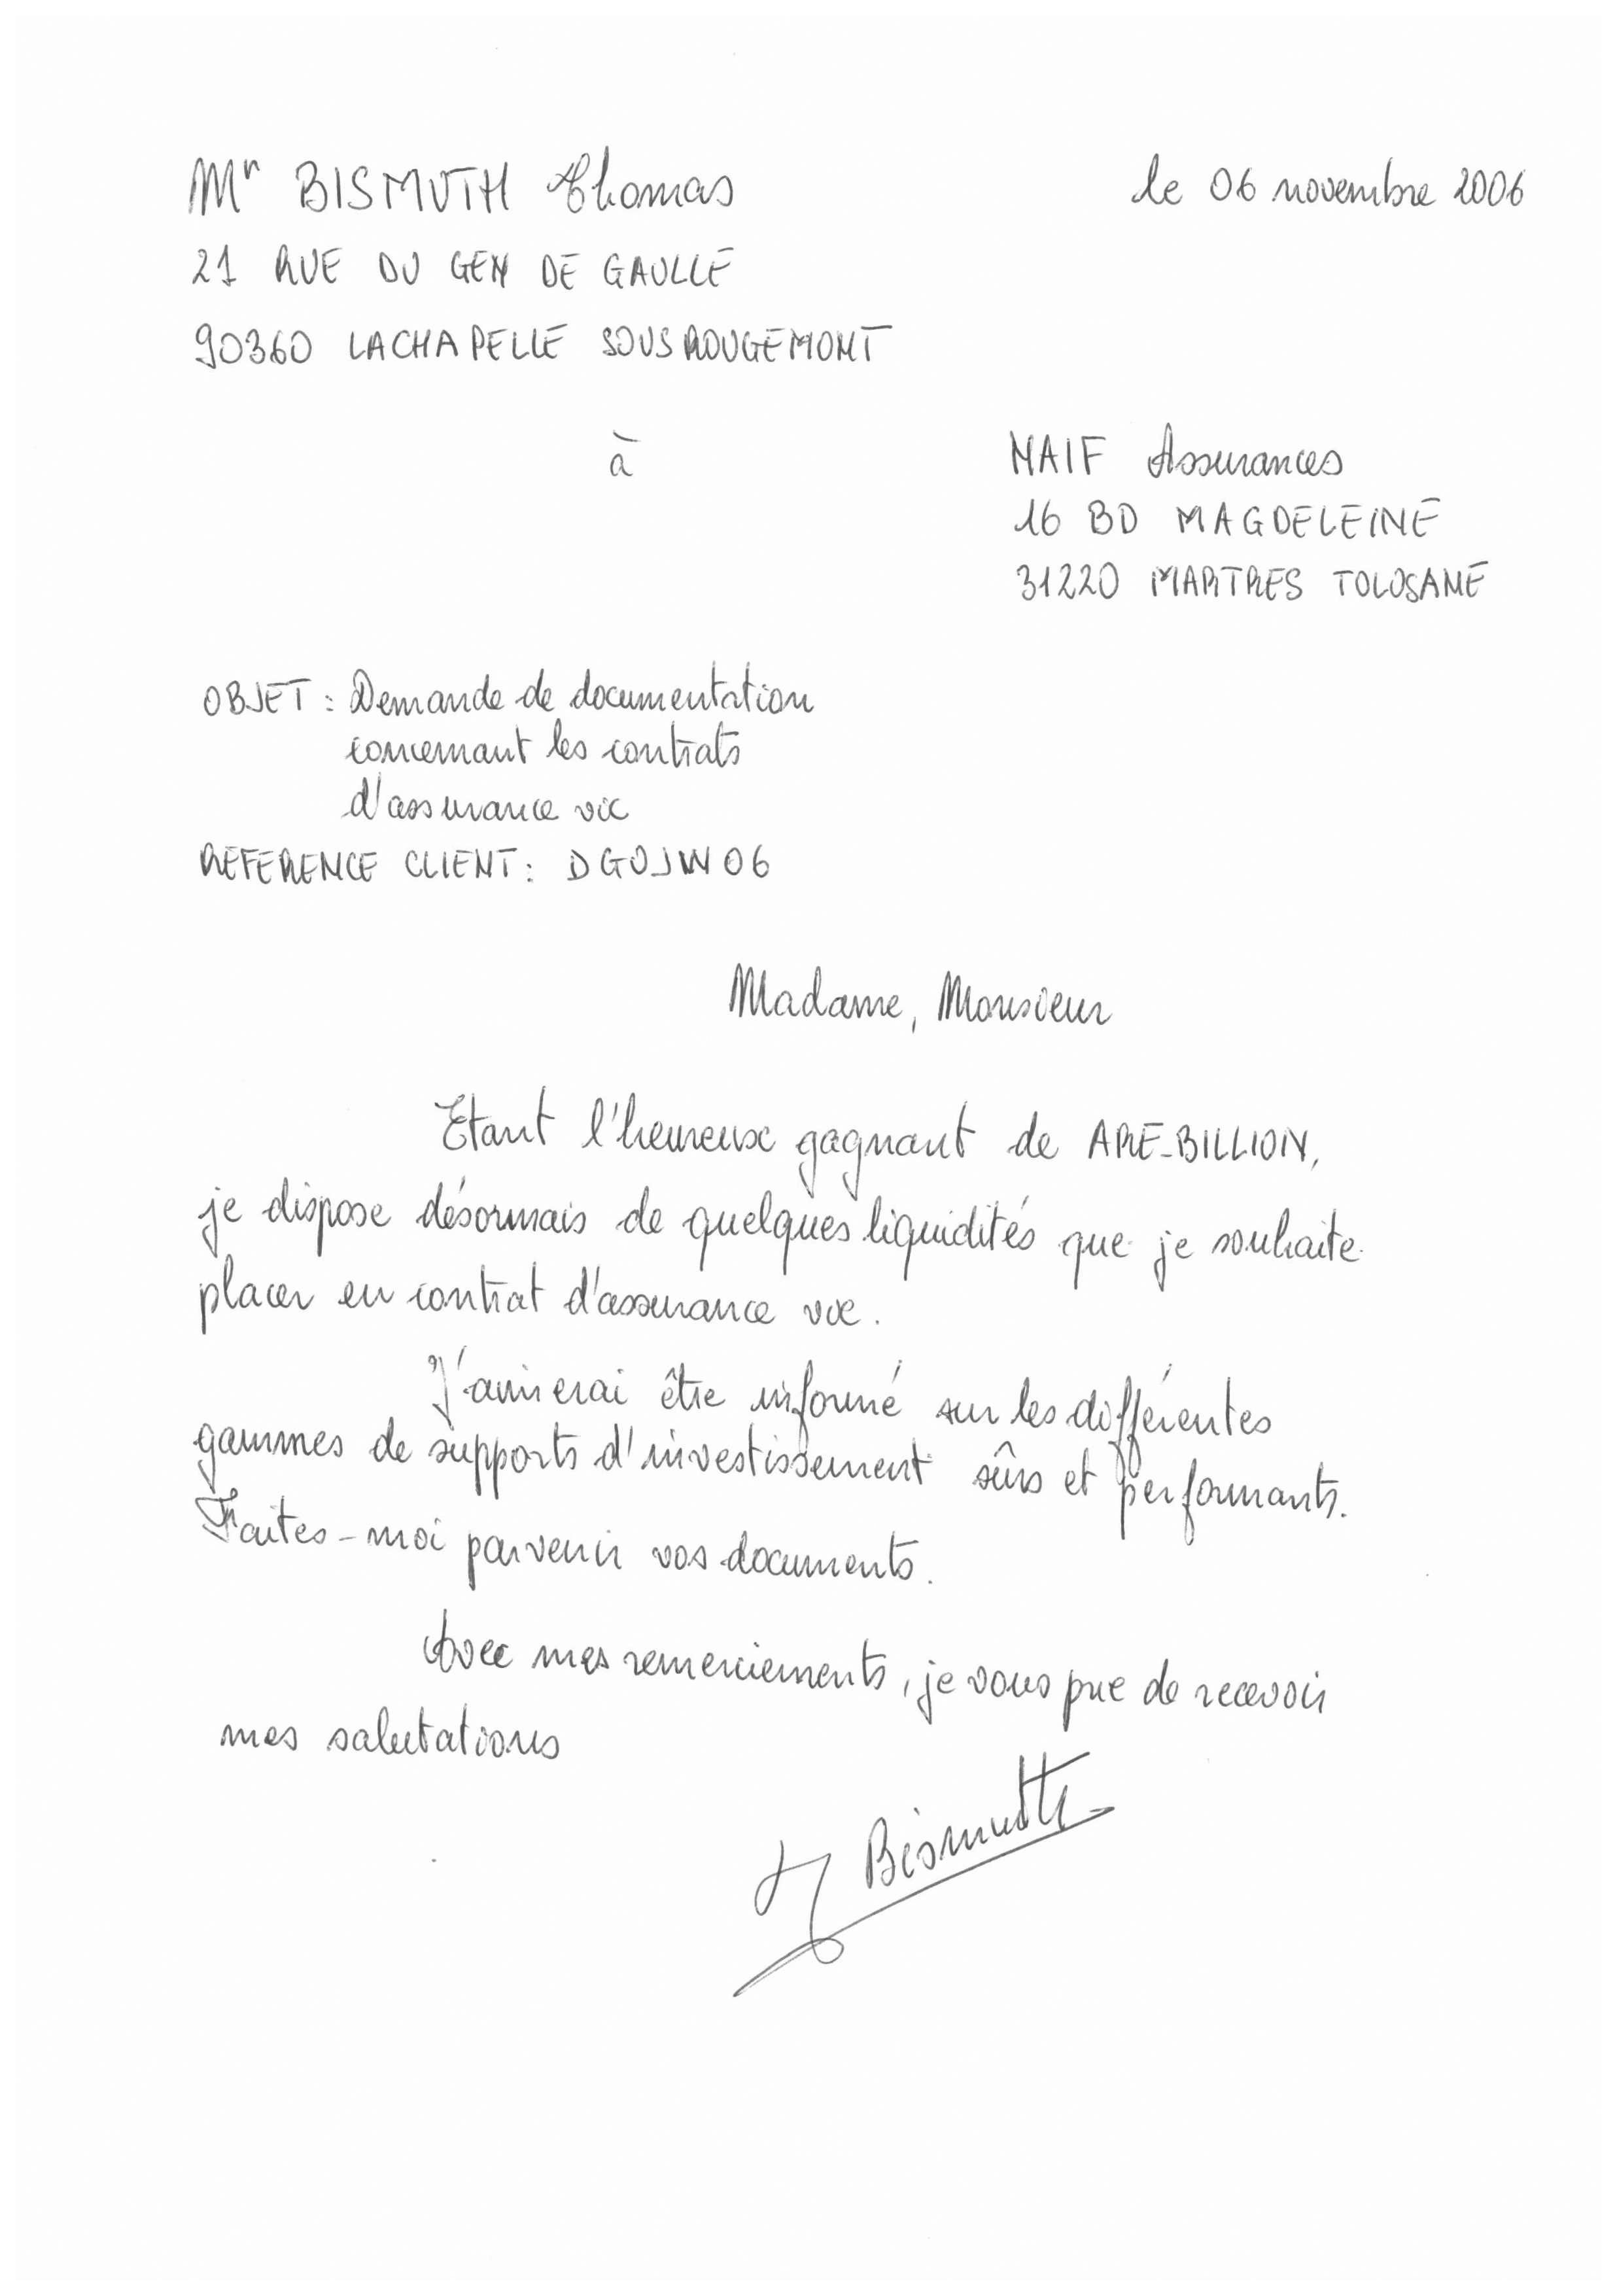 Mr BISMUTH Thomas
le 06 novembre 2006
21 RUE DU GEN DE GAULLE
90360 LACHAPELLE SOUS ROUGEMONT
à
NAIF Assurances
16 BD MAGDELEINE
31220 MARTRES TOLOSANE
OBJET : Demande de documentation
concernant les contrats
d'assurance vie
REFERENCE CLIENT : DGOJW06
Madame, Monsieur
Etant l'heureux gagnant de ARE-BILLION,
je dispose désormais de quelques liquidités que je souhaite
placer en contrat d'assurance vie.
J'aimerai être informé sur les différentes
gammes de supports d'investissement sûrs et performants.
Faites-moi parvenir vos documents.
Avec mes remerciements, je vous prie de recevoir
mes salutations
Bismuth